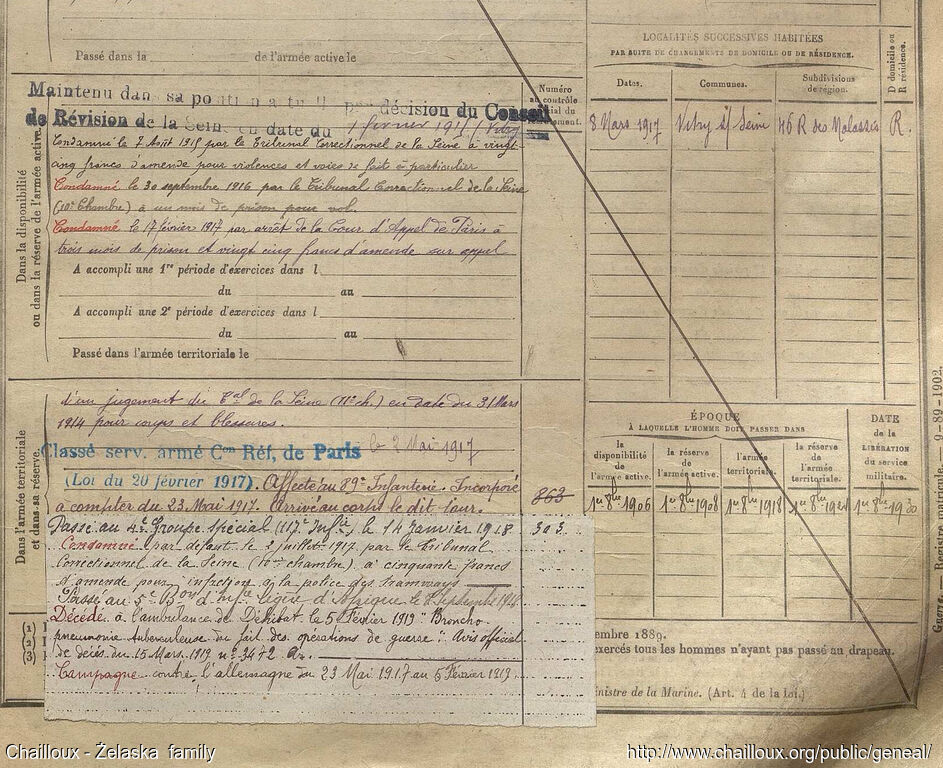 Passé dans la de l'armée active le
Maintenu dans sa position par décision du Conseil
de Révision de la Seine en date du 1 février 191
Condamné le 7 Août 1915 par le Tribunal Correctionnel de la Seine à vingt-
cinq francs d'amende pour violences et voies de fait à particulier
Condamné le 30 septembre 1916 par le Tribunal Correctionnel de la Seine
(10e Chambre) à un mois de prison pour vol.
Condamné le 17 février 1917 par arrêt de la Cour d'Appel de Paris à
trois mois de prison et vingt cinq francs d'amende sur appel
A accompli une 1re période d'exercices dans l
du au
A accompli une 2e période d'exercices dans l
du au
Passé dans l'armée territoriale le
Dans la disponibilité
ou dans la réserve de l'armée active.
d'un jugement du Bal de la Seine (11e ch.) en date du 31 Mars
1914 pour coups et blessures.
Classé serv. armé Con Réf, de Paris le 2 Mai 1917
(Loi du 20 février 1917). Affecté au 89e Infanterie. Incorporé
à compter du 23 Mai 1917. Arrivé au corps le dit jour. 863
Passé au 4e Groupe Spécial (117e Infie) le 14 Janvier 1918 303
Condamné par défaut le 2 juillet 1917 par le Tribunal
Correctionnel de la Seine (10me chambre) à cinquante francs
d'amende pour infraction à la police des tramways
Passé au 5e Bon d'Infie légère d'Afrique le Septembre 1918
Décédé à l'ambulance de Débitat le 5 Février 1919 "Broncho-
pneumonie tuberculeuse du fait des opérations de guerre". Avis officiel
de décès du 15 Mars 1919 n° 3472
Campagne contre l'allemagne du 23 Mai 1917 au 5 Février 1919
Dans l'armée territoriale
et dans sa réserve.
(1)
(2)
(3)
Numéro
au contrôle
LOCALITÉS SUCCESSIVES HABITÉES
PAR SUITE DE CHANGEMENTS DE DOMICILE OU DE RÉSIDENCE.
Dates. Communes. Subdivisions de région. D domicile ou R résidence.
8 Mars 1917 Vitry s/ Seine 46 R des Malassis R.
ÉPOQUE
À LAQUELLE L'HOMME DOIT PASSER DANS
la disponibilité de l'armée active. la réserve de l'armée active. l'armée territoriale. la réserve de l'armée territoriale. DATE de la LIBÉRATION du service militaire.
1er 8bre 1905 1er 8bre 1908 1er 8bre 1918 1er 8bre 1924 1er 8bre 1930
embre 1889.
exercés tous les hommes n'ayant pas passé au drapeau.
inistre de la Marine. (Art. 4 de la loi.)
Registre matricule. — 9-89-1902.
Chailloux - Żelaska family
http://www.chailloux.org/public/geneal/